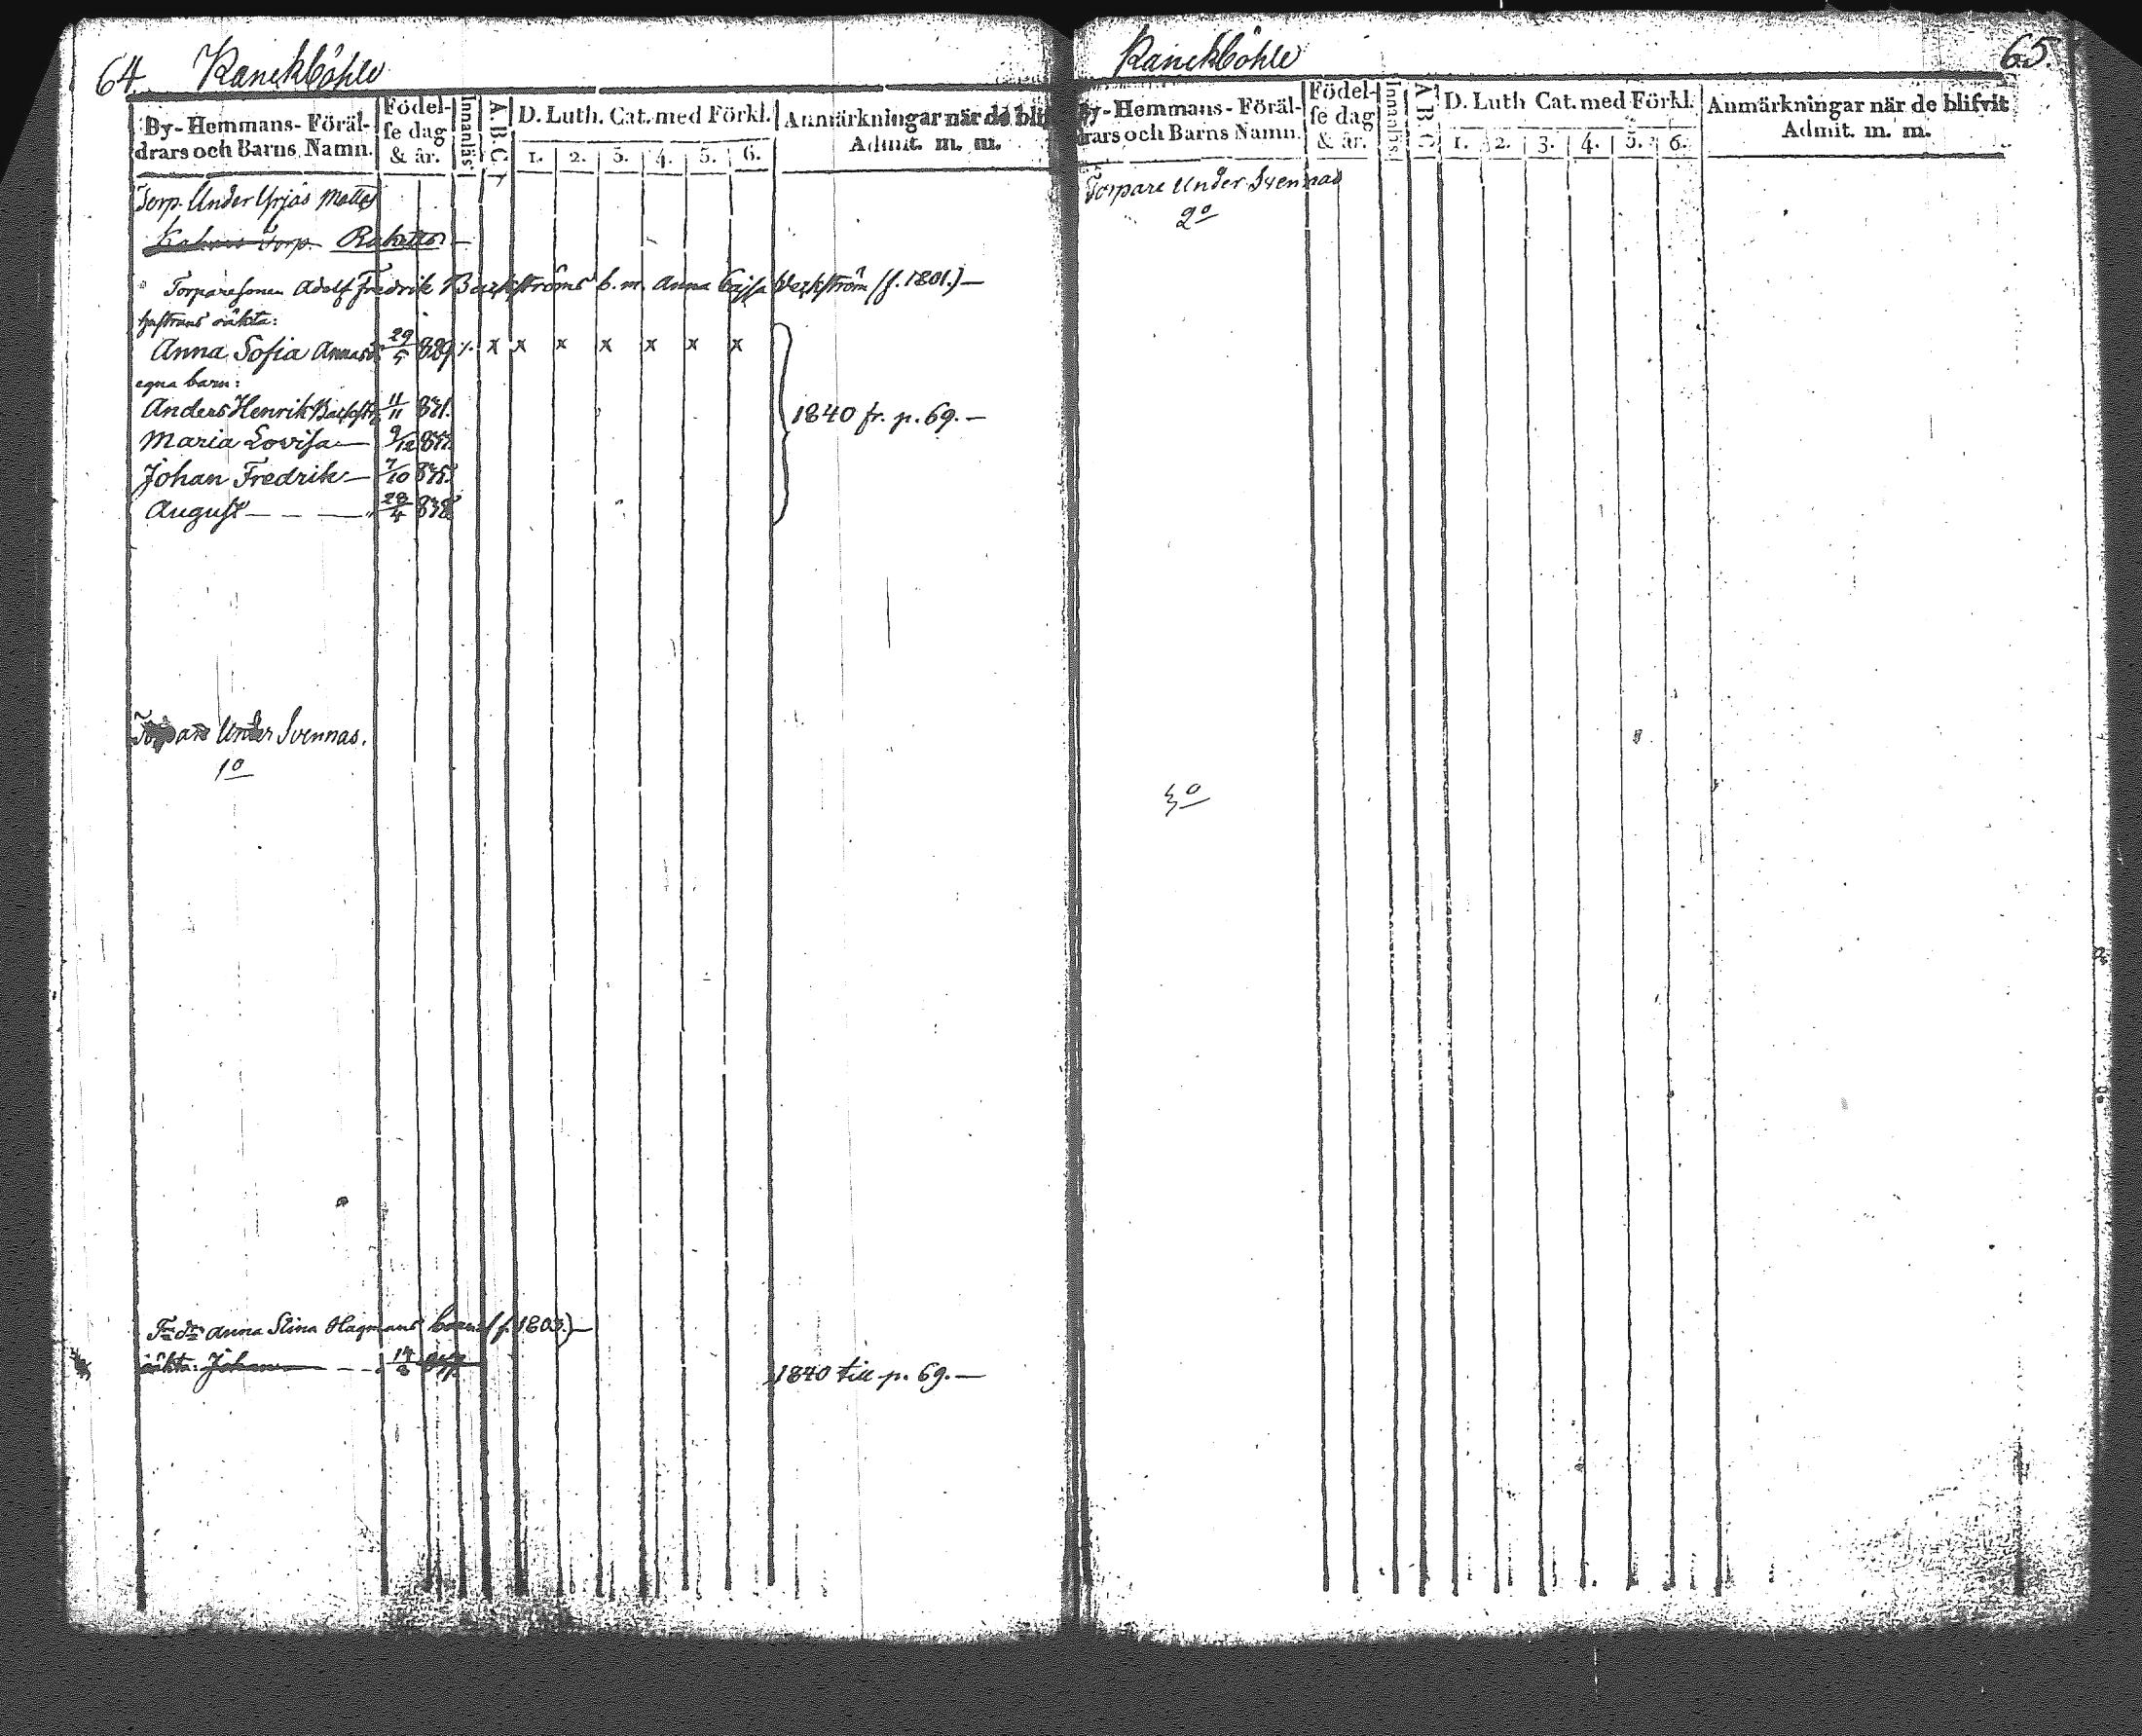 64 Kanckböhle
By-Hemmans-Föräl-
drars och Barns Namn.
Födel-
se dag
& år.
Innanläs:
A.B.C.
D. Luth. Cat. med Förkl.
1. 2. 3. 4. 5. 6.
Anmärkningar när de bli
Admit. m. m.
Torp. Under Yrjäs Mattas
Torp.
Torparesonen Adolf Fredrik Backströms b. m. Anna Cajsa (f. 1801.)—
hustruns oäkta:
Anna Sofia 29/5 829 x x x x x x x
egna barn:
Anders Henrik 11/11 831.
1840 fr. p. 69.—
Maria Lovisa — 9/12 833.
Johan Fredrik — 7/10 835.
August — — — 28/4 838
Torpare Under Svennas.
1o
Anna Stina Hagmans barn (f. 1803.)—
oäkta: Johan
1840 till p. 69.—
Kanckböhle 65.
By-Hemmans-Föräl-
drars och Barns Namn.
Födel-
se dag
& år.
Innanläs:
A B C
D. Luth Cat. med Förkl.
1. 2. 3. 4. 5. 6.
Anmärkningar när de blifvit
Admit. m. m.
Torpare Under Svennas
2o
3o